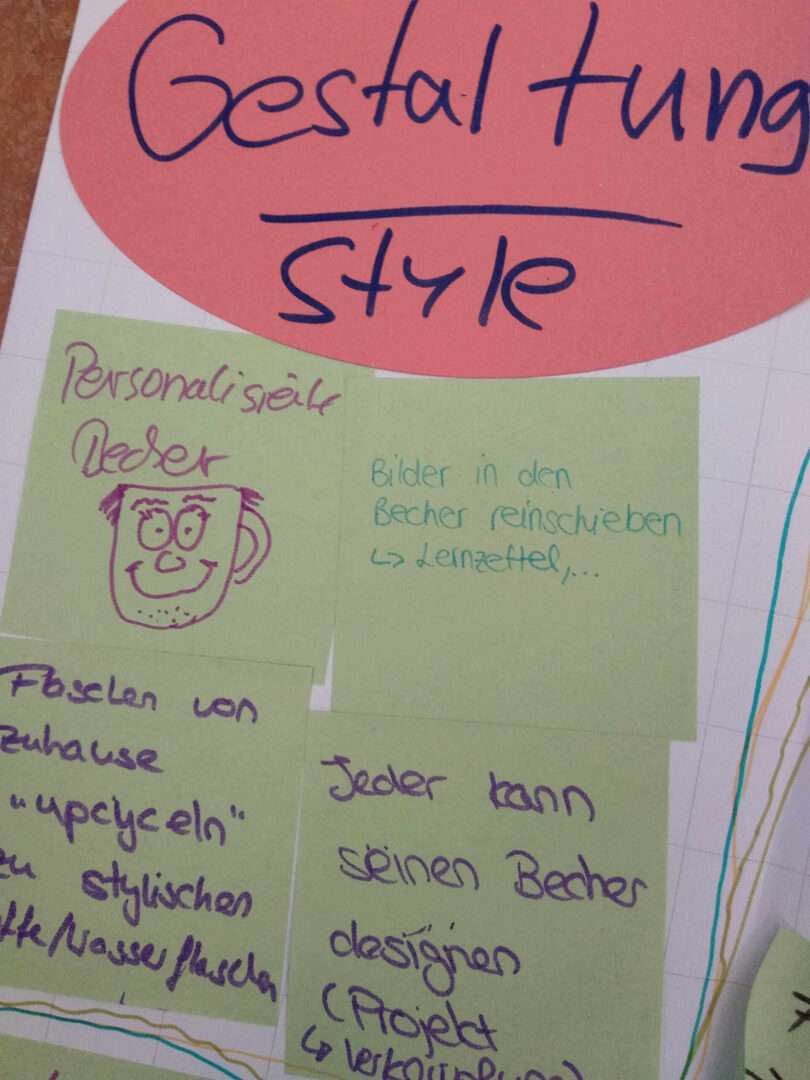 Gestaltung
Style
Personalisierte
Becher
Bilder in den
Becher reinschieben
↳ Lernzettel,...
Flaschen von
zuhause
"upcyceln"
zu stylischen
Wasserflaschen
Jeder kann
seinen Becher
designen
(Projekt